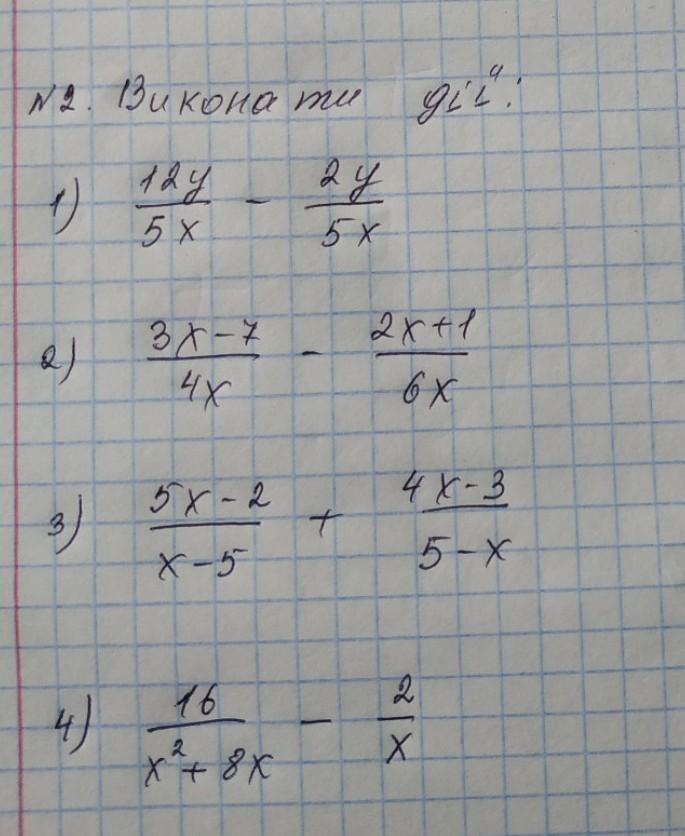 №2. Виконати дії:
1) 12y/5x - 2y/5x
2) 3x-7/4x - 2x+1/6x
3) 5x-2/x-5 + 4x-3/5-x
4) 16/x²+8x - 2/x